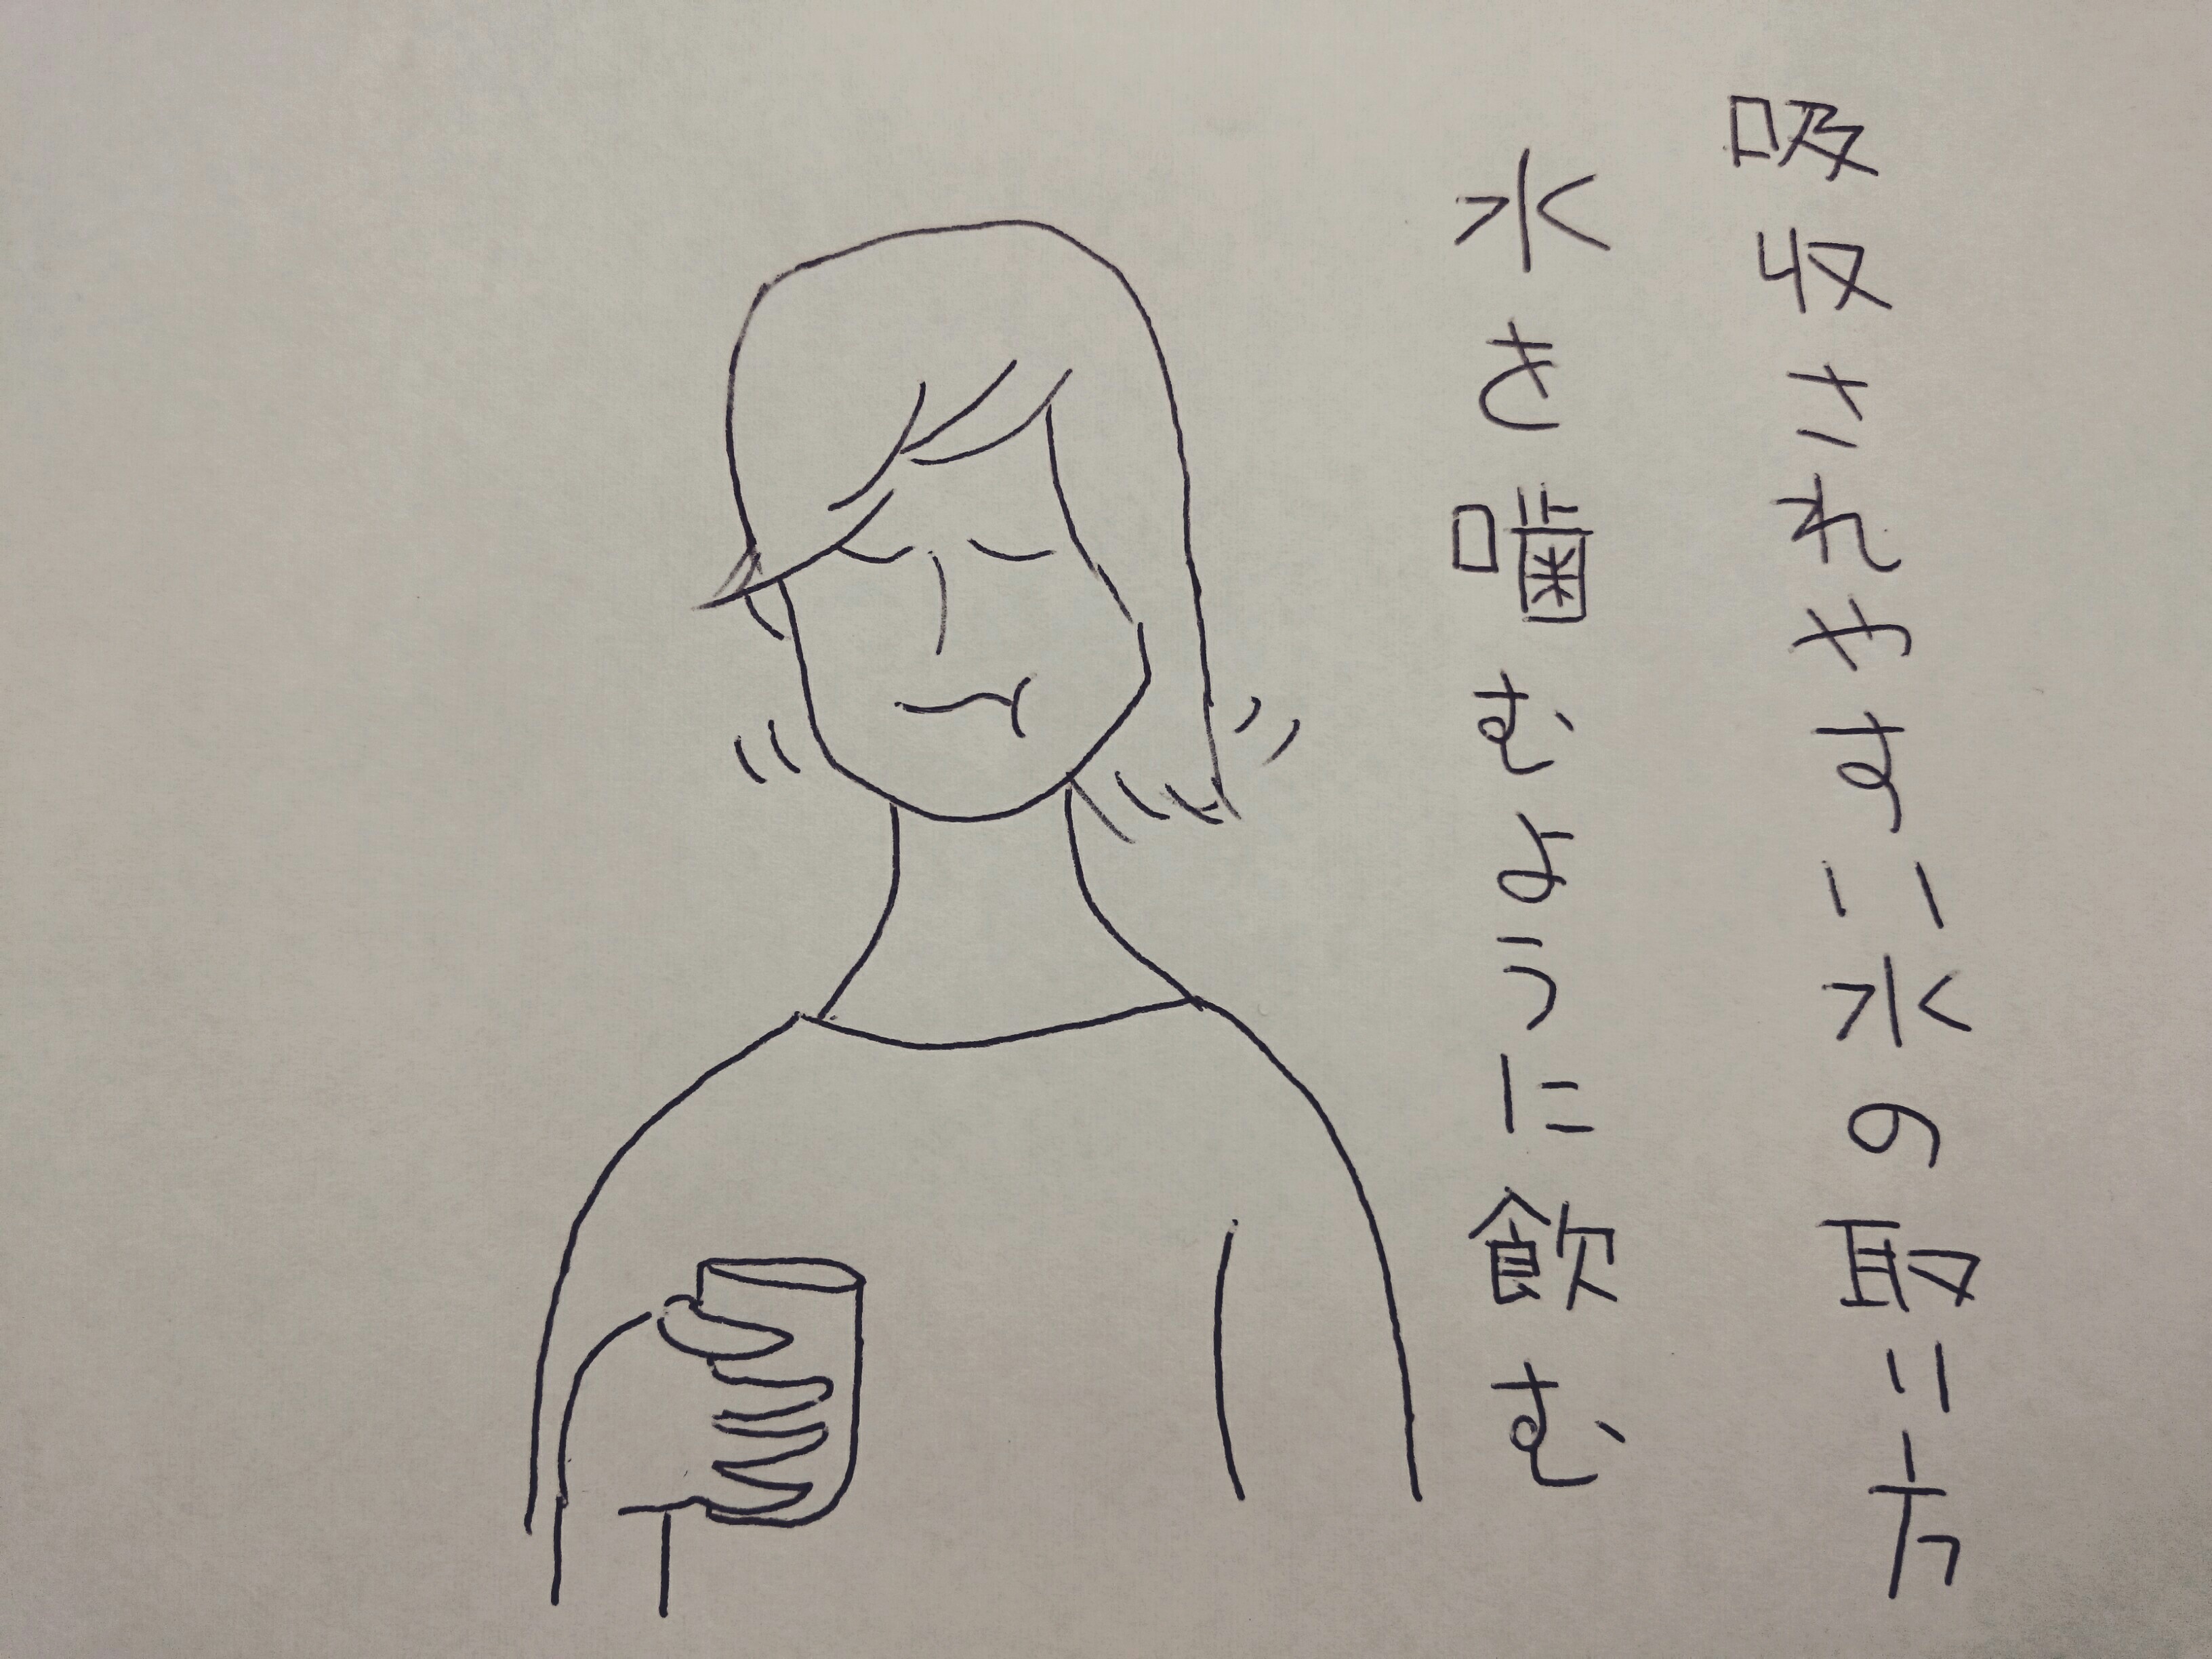 吸収されやすい水の取り方
水を噛むように飲む